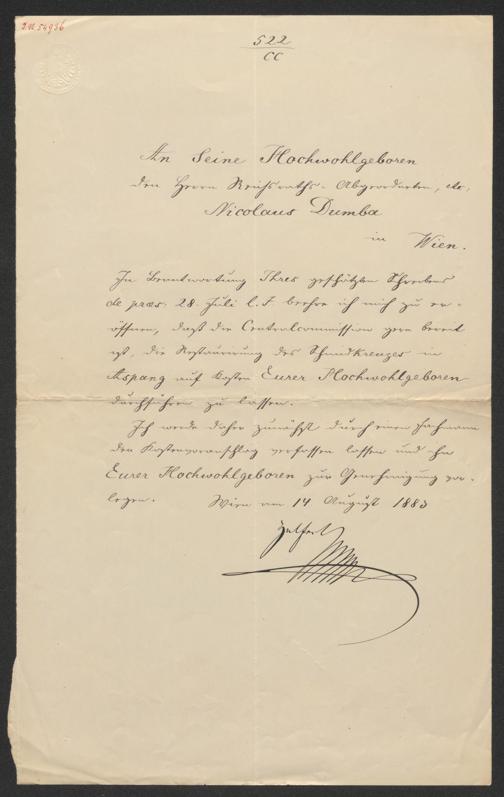 I.N. 54936
522
CC
An Seine Hochwohlgeboren
den Herrn Reichsraths-Abgeordneten, etc.
Nicolaus Dumba
in Wien.
In Beantwortung Ihres geschätzten Schreibens
de præs. 28. Juli l. J. beehre ich mich zu er-
öffnen, daß die Centralcommission gern bereit
ist, die Restaurirung des Kreuzes in
Aspang auf Kosten Eurer Hochwohlgeboren
durchführen zu lassen.
Ich werde daher zunächst durch einen Fachmann
den Kostenvoranschlag verfassen lassen und ihn
Eurer Hochwohlgeboren zur Genehmigung vor-
legen. Wien am 14 August 1883
Helfert